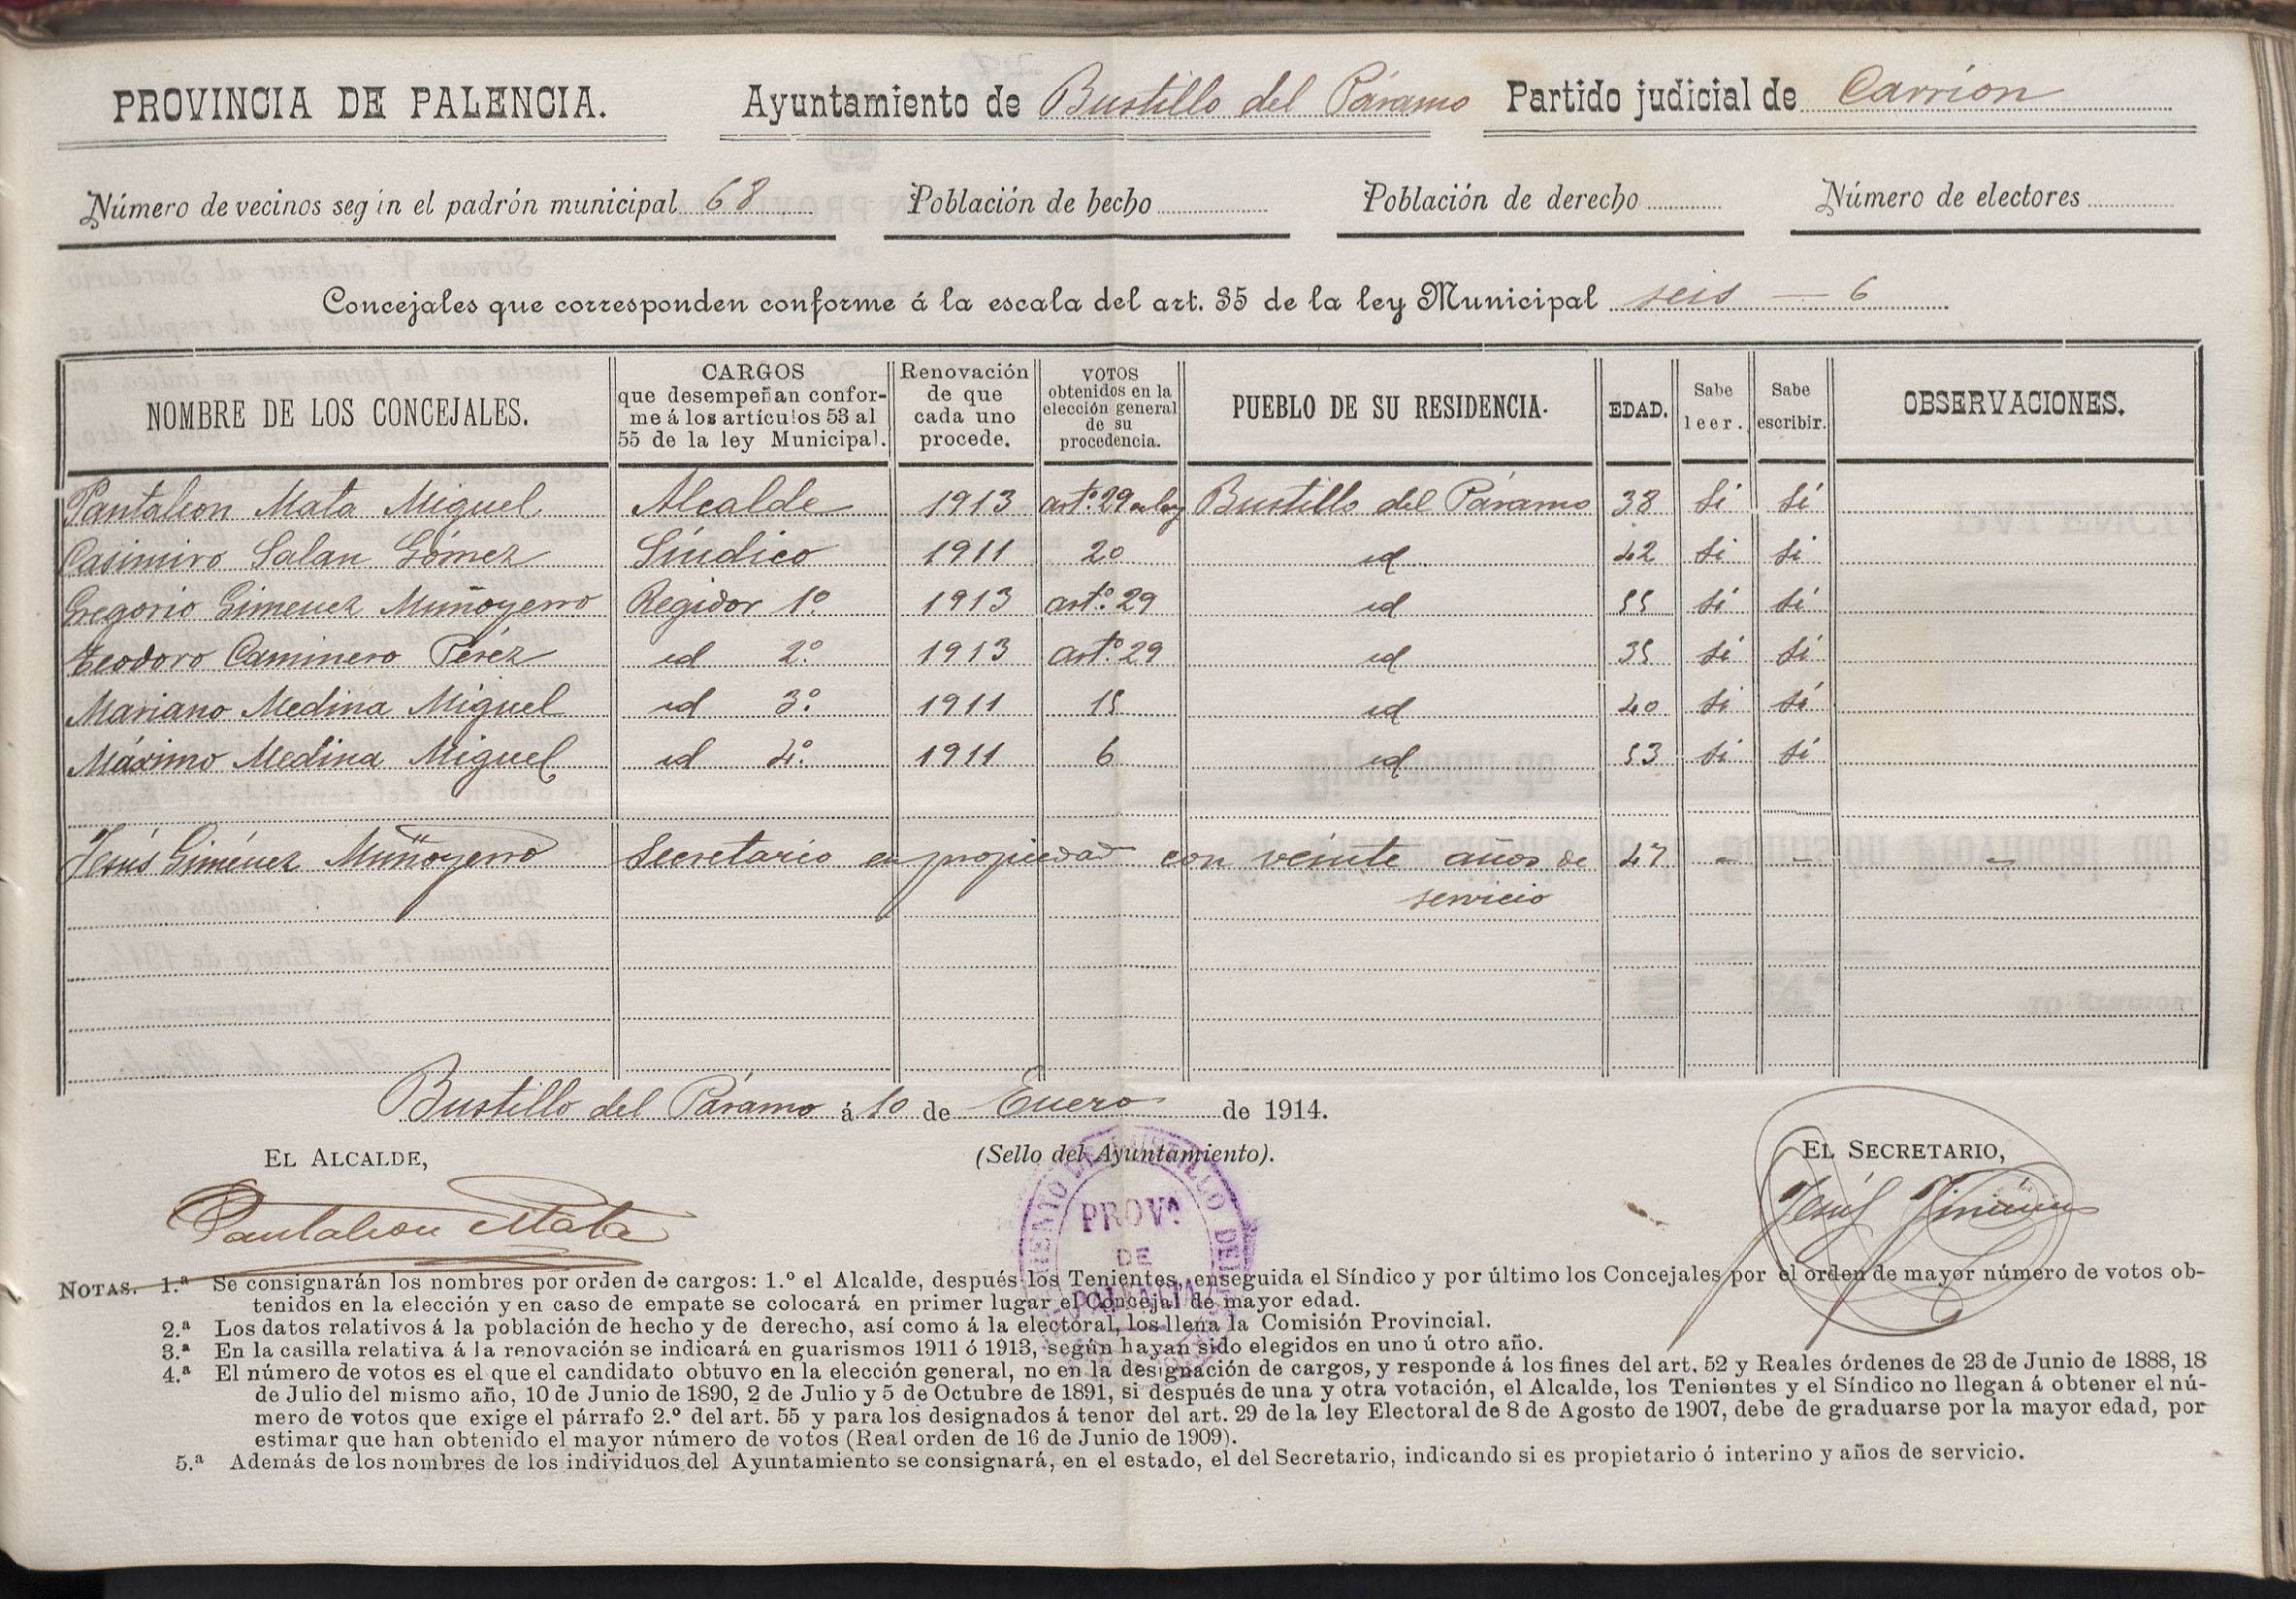 PROVINCIA DE PALENCIA. Ayuntamiento de Bustillo del Páramo Partido judicial de Carrion
Número de vecinos seg in el padrón municipal 68 Población de hecho Población de derecho Número de electores
Concejales que corresponden conforme á la escala del art. 35 de la ley Municipal seis — 6
NOMBRE DE LOS CONCEJALES. CARGOS que desempeñan confor-me á los artículos 53 al 55 de la ley Municipal. Renovación de que cada uno procede. VOTOS obtenidos en la elección general de su procedencia. PUEBLO DE SU RESIDENCIA. EDAD. Sabe leer. Sabe escribir. OBSERVACIONES.
Pantaleon Mata Miguel Alcalde 1913 artº. 29 Bustillo del Páramo 38 Si Sí
Casimiro Salan Gómez Síndico 1911 20 id 42 Si Si
Gregorio Gimenez Muñoyerro Regidor 1º. 1913 artº. 29 id 55 Sí Sí
Teodoro Caminero Peréz id 2º. 1913 artº. 29 id 35 Sí Sí
Mariano Medina Miguel id 3º. 1911 15 id 40 Si Sí
Máximo Medina Miguel id 4º. 1911 6 id 53 Si Sí
Jesús Giménez Muñoyerro Secretario en propiedad con veinte años de 47 - - -
servicio
Bustillo del Páramo á 10 de Enero de 1914.
EL ALCALDE, (Sello del Ayuntamiento). EL SECRETARIO,
Pantaleon Mata Jesús Jiménez
PROVA.
DE
PALENCIA
NOTAS. 1.ª Se consignarán los nombres por orden de cargos: 1.º el Alcalde, después los Tenientes, enseguida el Síndico y por último los Concejales por el orden de mayor número de votos ob-
tenidos en la elección y en caso de empate se colocará en primer lugar el Concejal de mayor edad.
2.ª Los datos relativos á la población de hecho y de derecho, así como á la electoral, los llena la Comisión Provincial.
3.ª En la casilla relativa á la renovación se indicará en guarismos 1911 ó 1913, según hayan sido elegidos en uno ú otro año.
4.ª El número de votos es el que el candidato obtuvo en la elección general, no en la designación de cargos, y responde á los fines del art. 52 y Reales órdenes de 23 de Junio de 1888, 18
de Julio del mismo año, 10 de Junio de 1890, 2 de Julio y 5 de Octubre de 1891, si después de una y otra votación, el Alcalde, los Tenientes y el Síndico no llegan á obtener el nú-
mero de votos que exige el párrafo 2.º del art. 55 y para los designados á tenor del art. 29 de la ley Electoral de 8 de Agosto de 1907, debe de graduarse por la mayor edad, por
estimar que han obtenido el mayor número de votos (Real orden de 16 de Junio de 1909).
5.ª Además de los nombres de los individuos del Ayuntamiento se consignará, en el estado, el del Secretario, indicando si es propietario ó interino y años de servicio.